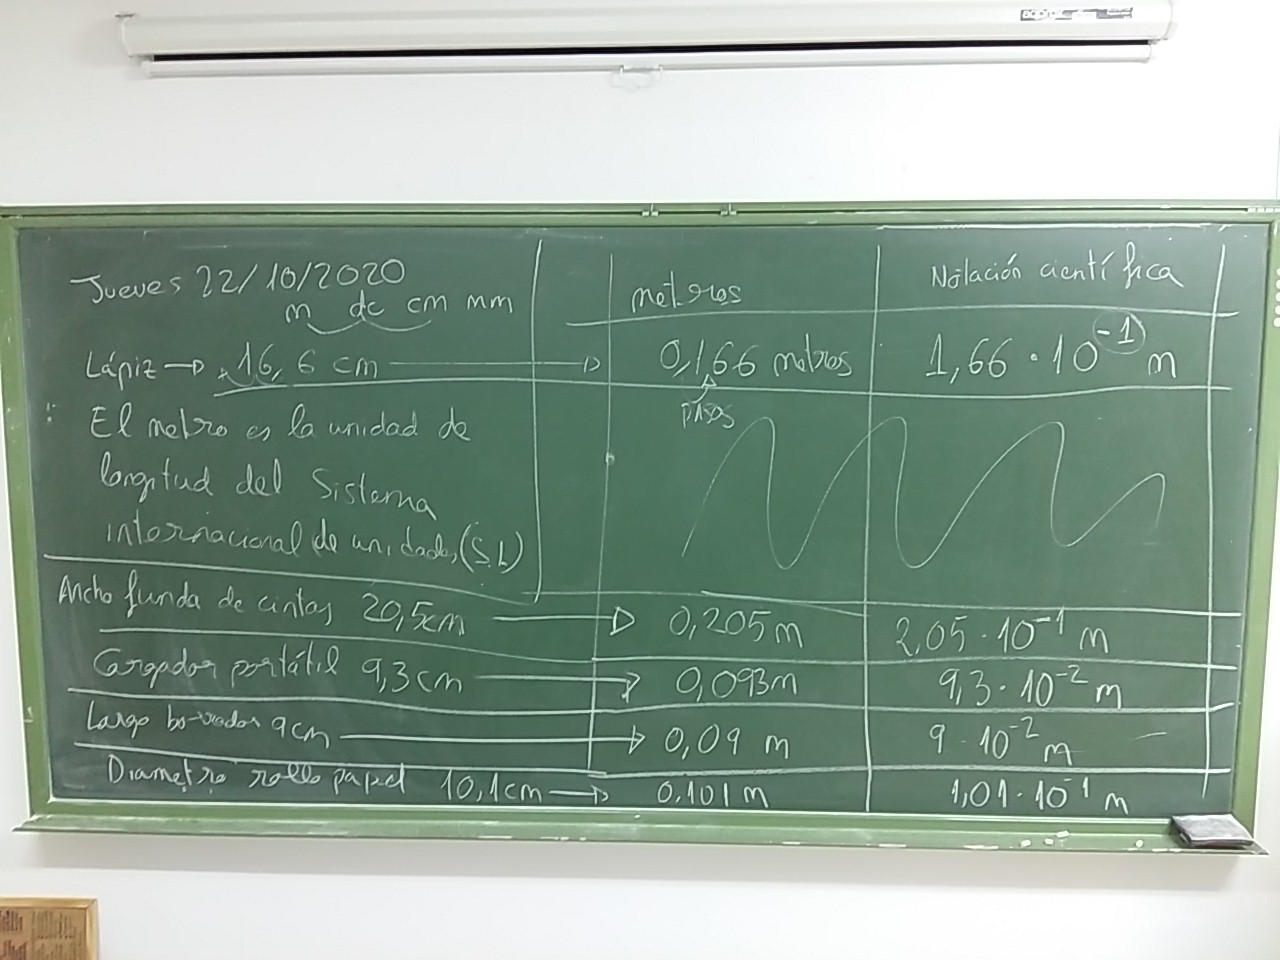 approx
Jueves 22/10/2020
m dc cm mm
metros
Notación científica
Lápiz → 16,6 cm → 0,166 metros 1,66 · 10⁻¹ m
pasos
El metro es la unidad de
longitud del Sistema
internacional de unidades (S.I.)
Ancho funda de cintas 20,5cm → 0,205 m 2,05 · 10⁻¹ m
Cargador portátil 9,3 cm → 0,093 m 9,3 · 10⁻² m
Largo borrador 9 cm → 0,09 m 9 · 10⁻² m
Diametro rollo papel 10,1cm → 0.101 m 1,01 · 10⁻¹ m